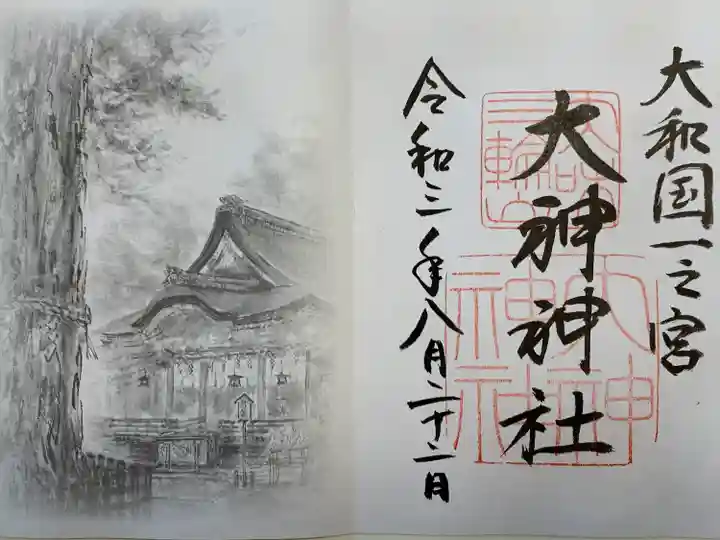 大和国一之宮
大神神社
令和三年八月二十二日
三輪山
大神神社